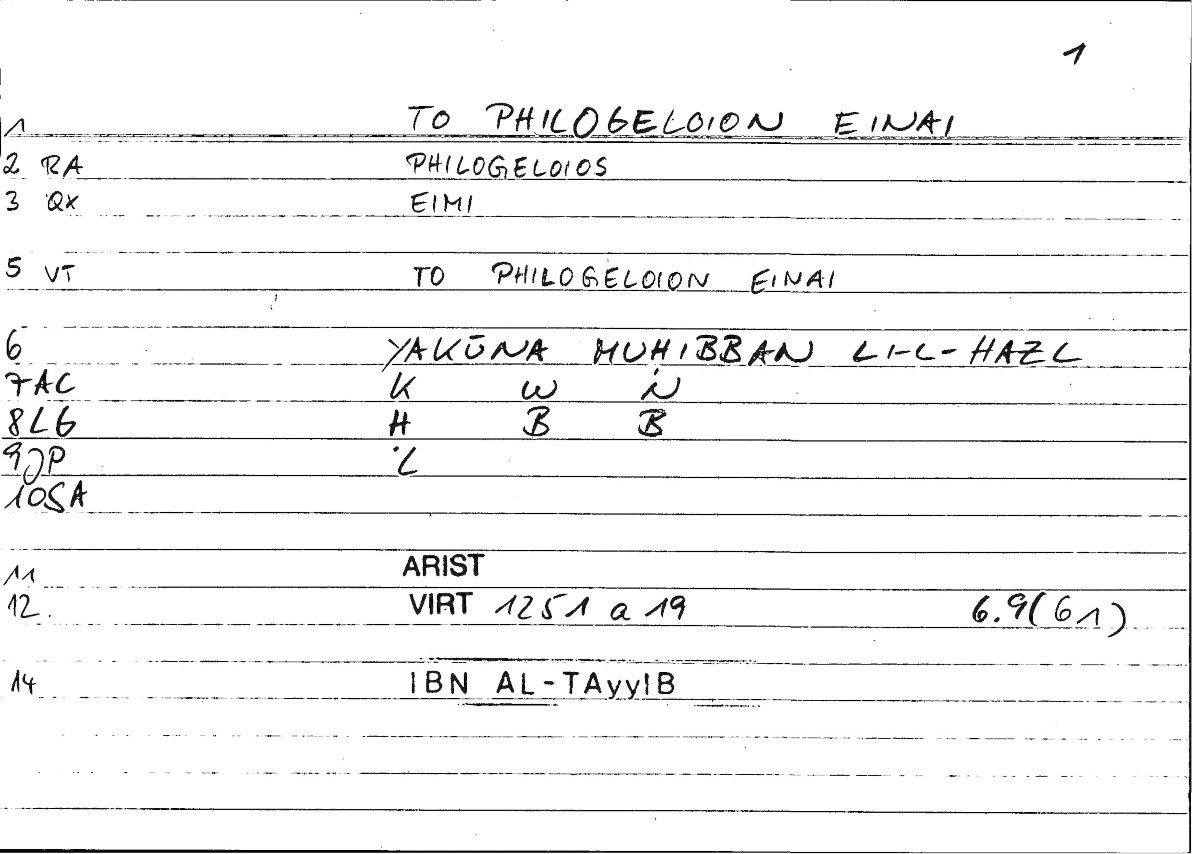 1
1 TO PHILOGELOION EINAI
2 RA PHILOGELOIOS
3 QX EIMI
5 VT TO PHILOGELOION EINAI
6 YAKŪNA MUHIBBAN LI-L-HAZL
7AC K W Ṅ
8LG H B B
9JP ˙L
10SA
11 ARIST
12. VIRT 1251 a 19 6.9(61)
14 IBN AL-TAyyIB